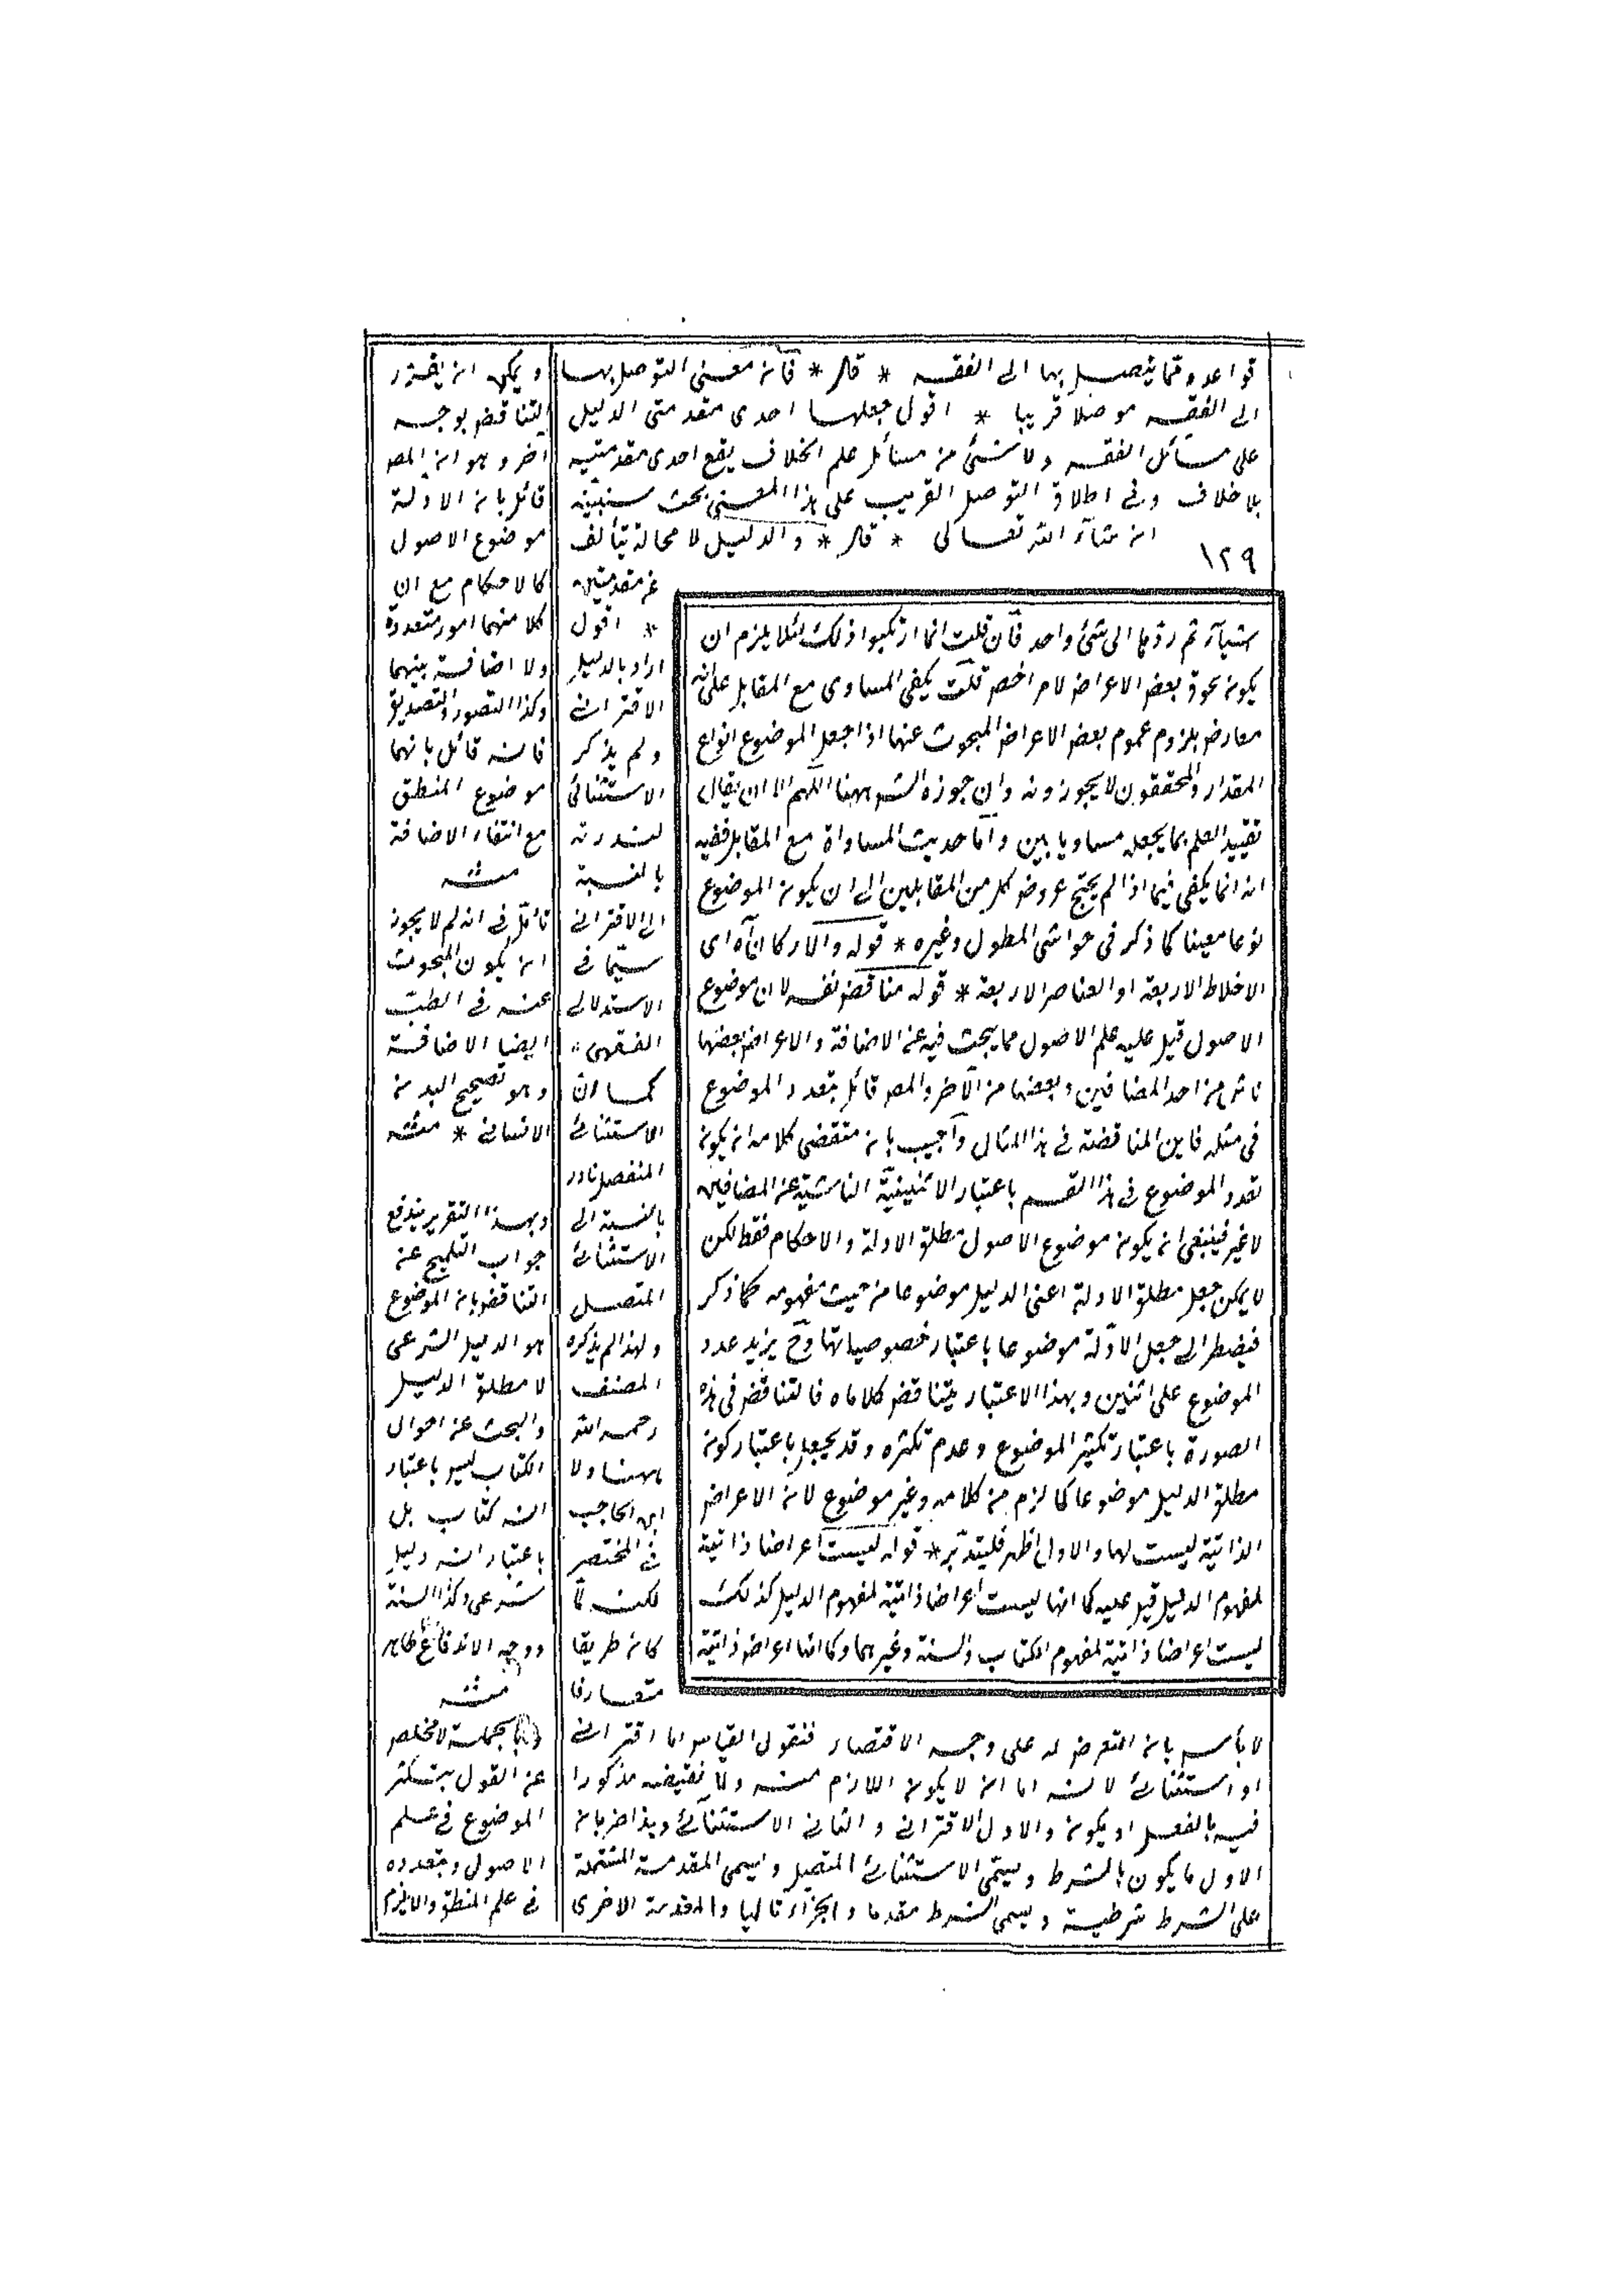 قواعد وقما يتصل بها الى الفقه * قال * فان معنى التوصل بها
الى الفقه موصلا قريبا * اقول جعلها احدى مقدمتى الدليل
على مسائل الفقه ولا شئ من مسائل علم الخلاف يقع احدى مقدمتيه
بلا خلاف وفى اطلاق التوصل القريب على هذا المعنى بحث سنبينه
ان شاء الله تعالى * قال * والدليل لا محالة يتألف
١٢٩
من مقدمتين
* اقول
اراد بالدليل
الاقترانى
ولم يذكر
الاستثنائى
لندرته
بالنسبة
الى الاقترانى
سيما فى
الاستدلال
الفقهى
كما ان
الاستثنائى
المنفصل نادر
بالنسبة الى
الاستثنائى
المتصل
ولهذا لم يذكره
المصنف
رحمه الله
ههنا ولا
ابن الحاجب
فى المختصر
لكنه لما
كان طريقا
متعارفا
لا بأس بان التعرض له على وجه الاقتصار فنقول القياس اما اقترانى
او استثنائى لانه اما ان لا يكون اللازم منه ولا نقيضه مذكورا
فيه بالفعل او يكون والاول الاقترانى والثانى الاستثنائى وهذا ضربان
الاول ما يكون بالشرط ويسمى الاستثنائى المتصل ويسمى المقدمة المشتملة
على الشرط شرطية ويسمى الشرط مقدما والجزاء تاليا والمقدمة الاخرى
اشياء ثم ردها الى شئ واحد فان قلت انما ارتكبوا ذلك لئلا يلزم ان
يكون لحوق بعض الاعراض لامر اخص قلت يكفى المساوى مع المقابل على انه
معارض بلزوم عموم بعض الاعراض المبحوث عنها اذا جعل الموضوع انواع
المقدار والمحققون لا يجوزونه وان جوزه الش ههنا اللهم الا ان يقال
تقييد العلم بما يجعله مساويا بين واما حديث المساواة مع المقابل ففيه
انه انما يكفى فيما اذا لم يحتج عروض كل من المقابلين الى ان يكون الموضوع
نوعا معينا كما ذكر فى حواشى المطول وغيره * قوله والاركان اه اى
الاخلاط الاربعة او العناصر الاربعة * قوله مناقض نفسه لان موضوع
الاصول قيل عليه علم الاصول مما يبحث فيه عن الاضافة والاعراض بعضها
ناش من احد المضافين وبعضها من الآخر والمص قائل بتعدد الموضوع
فى مثله فاين المناقضة فى هذا المثال واجيب بان مقتضى كلامه ان يكون
تعدد الموضوع فى هذا القسم باعتبار الاثنينية الناشية عن المضافين
لا غير فينبغى ان يكون موضوع الاصول مطلق الادلة والاحكام فقط لكن
لا يمكن جعل مطلق الادلة اعنى الدليل موضوعا من حيث مفهومه كما ذكر
فيضطر الى جعل الادلة موضوعا باعتبار خصوصياتها وح يزيد عدد
الموضوع على اثنين وبهذا الاعتبار يتناقض كلاماه فالتناقض فى هذه
الصورة باعتبار تكثير الموضوع وعدم تكثره وقد يجعل باعتبار كون
مطلق الدليل موضوعا كما لزم من كلامه وغير موضوع لان الاعراض
الذاتية ليست لها والاول اظهر فليتدبر * قوله ليست اعراضا ذاتية
لمفهوم الدليل قيل عليه كما انها ليست اعراضا ذاتية لمفهوم الدليل كذلك
ليست اعراضا ذاتية لمفهوم الكتاب والسنة وغيرهما وكما انها اعراض ذاتية
ويمكن ان يقرر
التناقض بوجه
آخر وهو ان المص
قائل بان الادلة
موضوع الاصول
كالاحكام مع ان
كلا منهما امور متعددة
ولا اضافة بينهما
وكذا التصور والتصديق
فانه قائل بانهما
موضوع المنطق
مع انتفاء الاضافة
منه
تأمل فى انه لم لا يجوز
ان يكون المبحوث
عنه فى الطب
ايضا الاضافة
وهو تصحيح البدن
الانسانى * منه
وبهذا التقرير يندفع
جواب التلميح عن
التناقض بان الموضوع
هو الدليل الشرعى
لا مطلق الدليل
والبحث عن احوال
الكتاب ليس باعتبار
انه كتاب بل
باعتبار انه دليل
شرعى وكذا السنة
ووجه الاندفاع ظاهر
منه
وبالجملة لا مخلص
عن القول بتكثر
الموضوع فى علم
الاصول وتعدده
فى علم المنطق والا يلزم